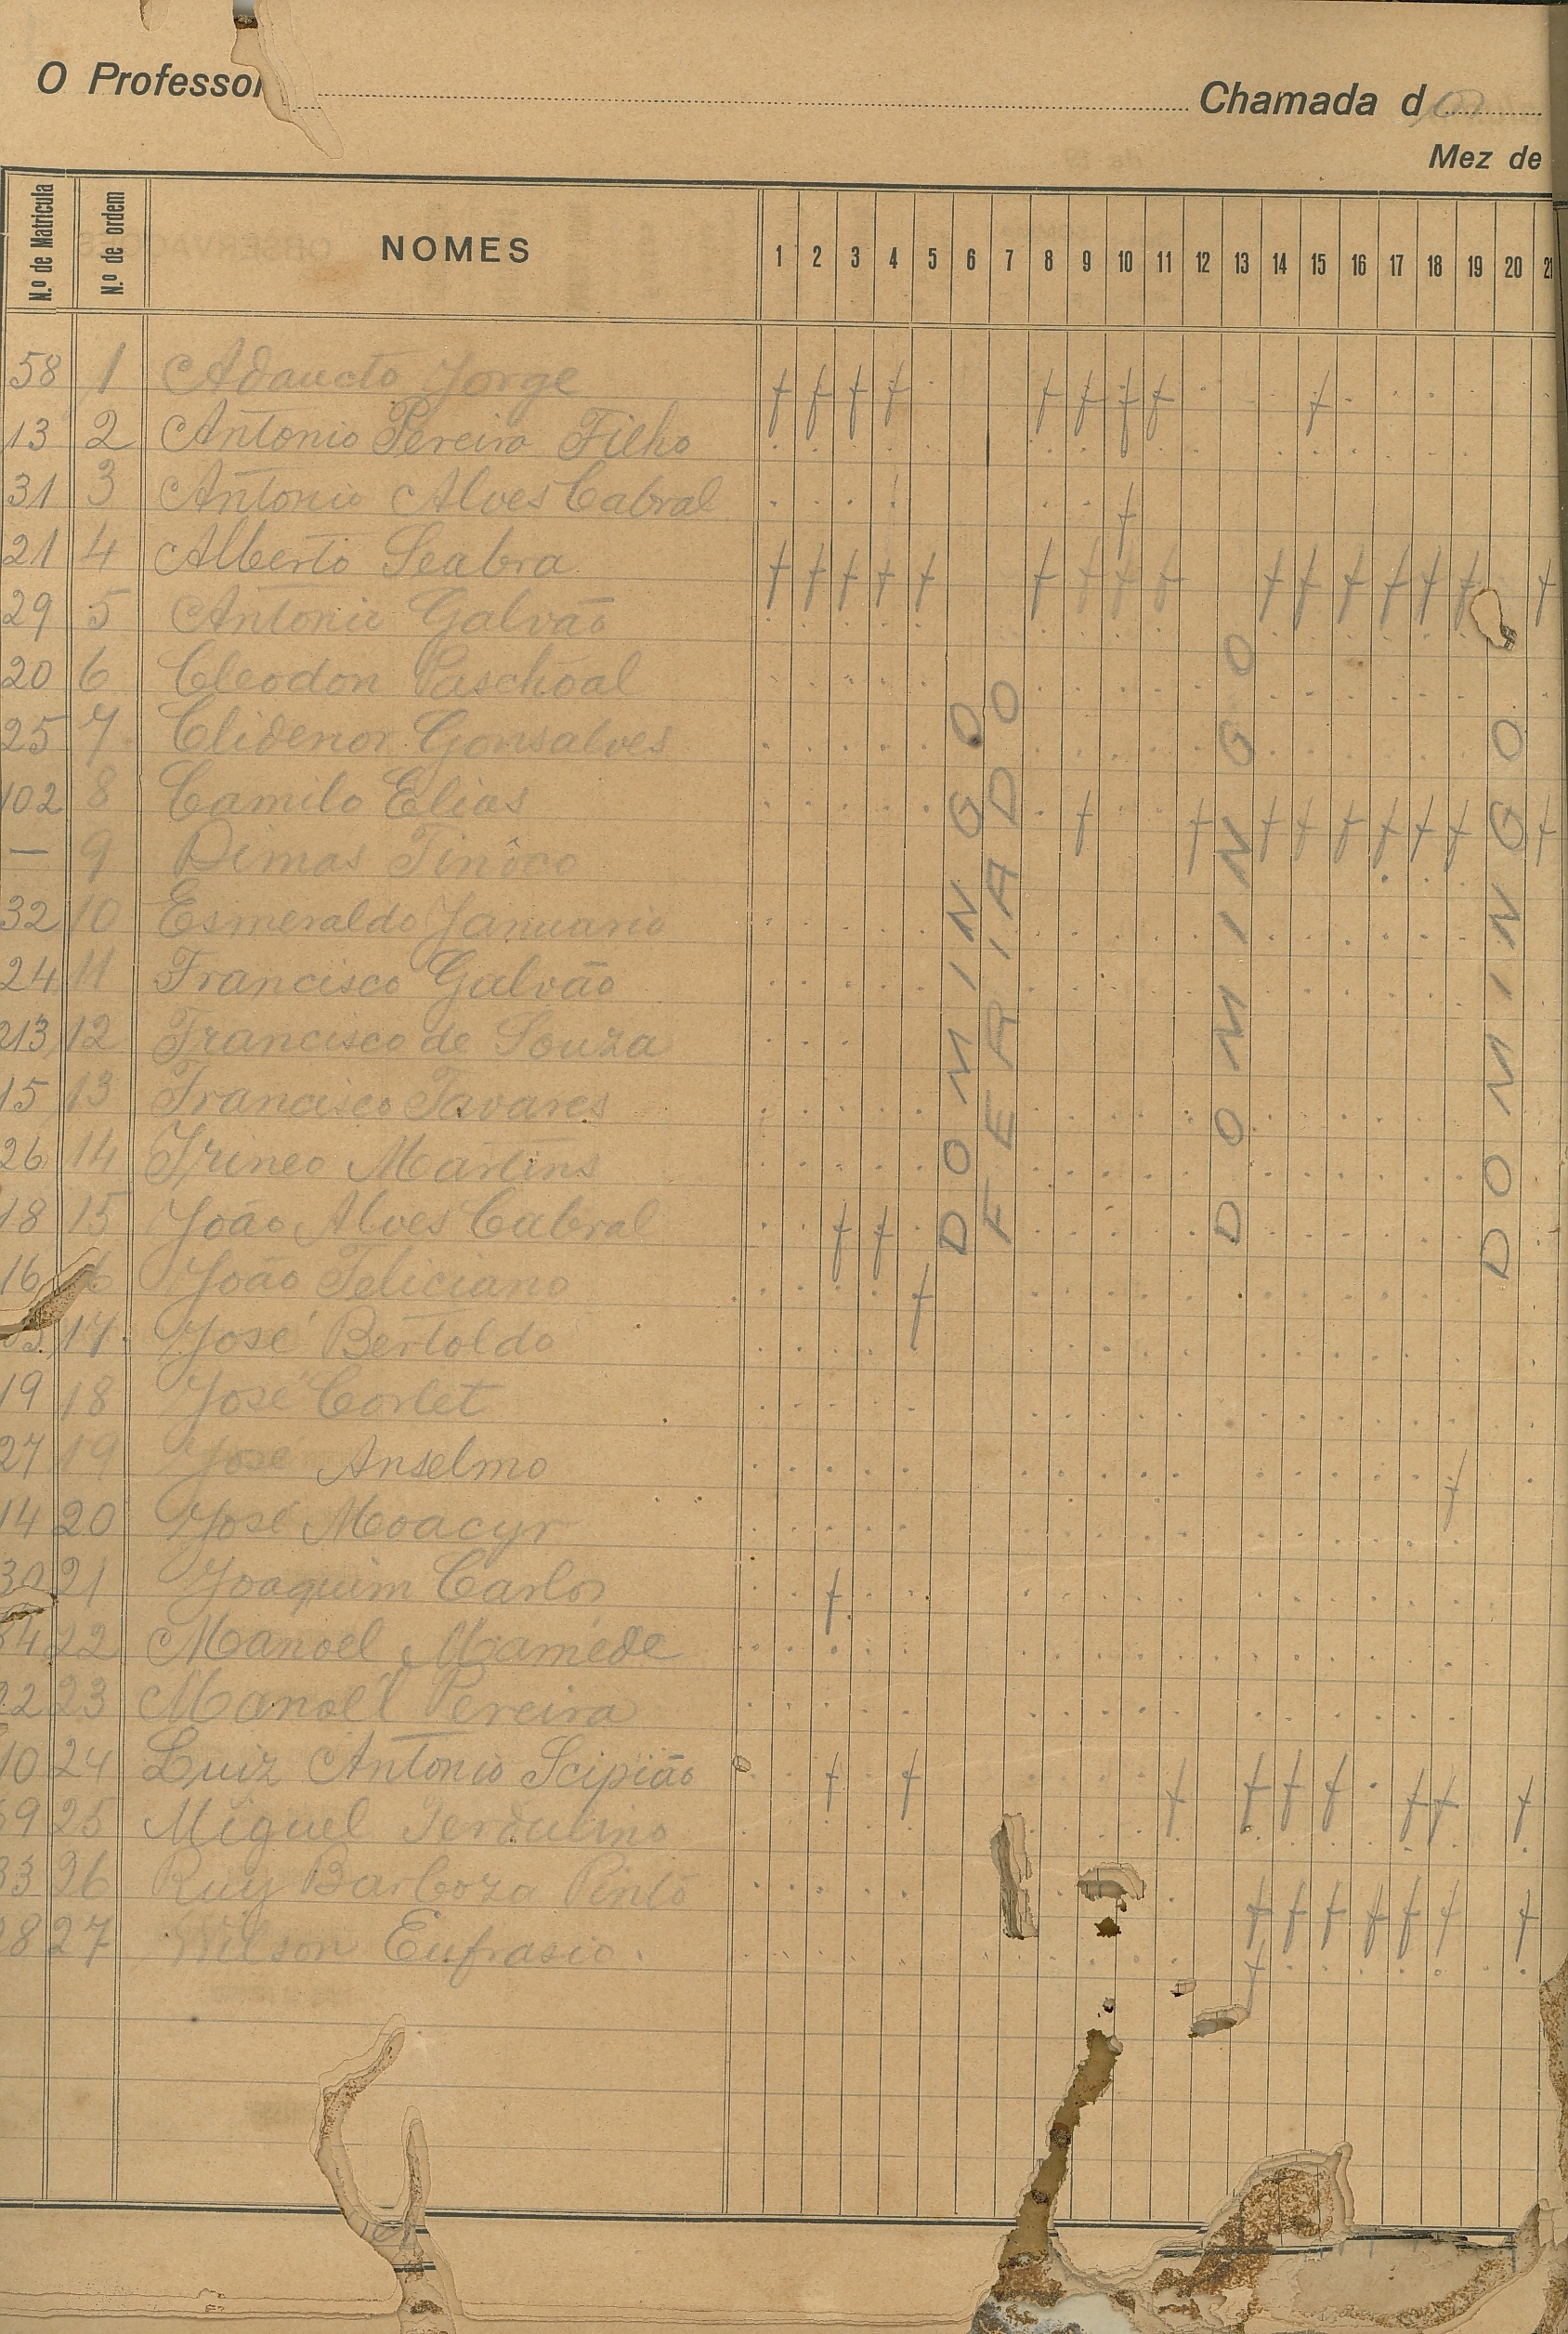 O Professor Chamada d
Mez de
N.º de Matricula N.º de ordem NOMES 1 2 3 4 5 6 7 8 9 10 11 12 13 14 15 16 17 18 19 20 21
58 1 Adaucto Jorge f f f f f f f f f
13 2 Antonio Pereira Filho
31 3 Antonio Alves Cabral f
21 4 Alberto Seabra f f f f f f f f f f f f f f f f f
29 5 Antonio Galvão
20 6 Cleodon Paschoal
25 7 Clidenor Gonsalves
102 8 Camilo Elias f f f f f f f f f
— 9 Dimas Tinôco
32 10 Esmeraldo Januario
24 11 Francisco Galvão
213 12 Francisco de Souza
15 13 Francisco Tavares
26 14 Irineo Martins
18 15 João Alves Cabral f f
16 João Feliciano f
17 José Bertoldo
19 18 José Corlet
27 19 José Anselmo f
14 20 José Moacyr
30 21 Joaquim Carlos f
22 Manoel Mamede
23 Manoel Pereira
10 24 Luiz Antonio Scipião f f f f f f f f f
25 Miguel
33 26 Ruy Barboza Pinto f f f f f f f
27 Wilson Eufrasio. f
DOMINGO
FERIADO
DOMINGO
DOMINGO